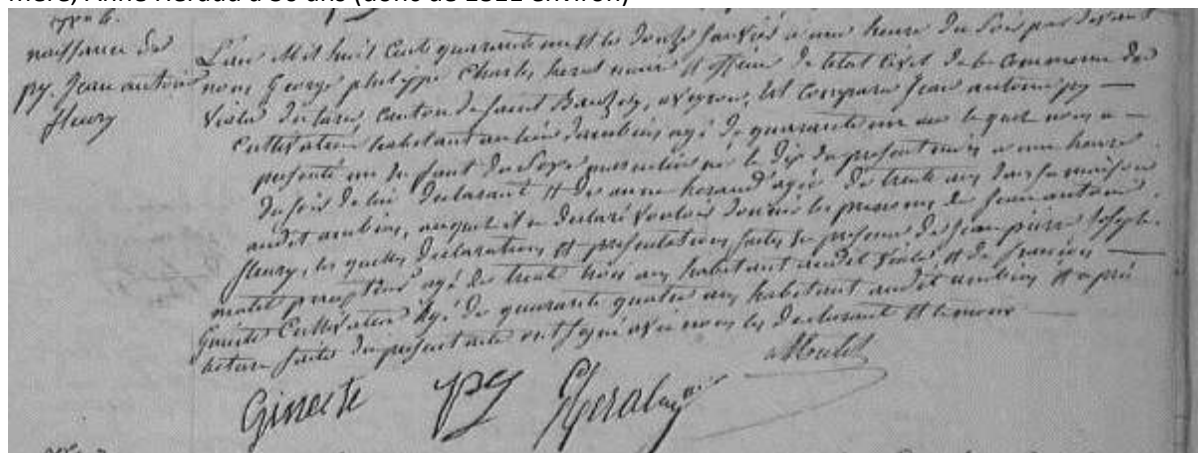 mère, Anne Héraud a 30 ans (donc de 1811 environ)
naissance de
py. Jean antoine
fleury
L'an Mil huit Cent quarante un et le Douze Janvier a une heure Du Soir par devant
nous George philippe Charles maire et officier De l'état Civil De la Commune De
Viala Dutarn, Canton de Saint Bauzely, aveyron, est Comparu Jean antoine py
Cultivateur habitant au lieu agé De quarante un ans lequel nous a
présenté un De Sexe masculin né le Dix Du présent mois a une heure
Du soir De lui Declarant et De anne heraud agée De trente ans Dans sa maison
audit auquel il a Declaré Vouloir Donner les prenoms De Jean antoine
fleury, les quelles Declarations et présentations faites En présence De Jean pierre Joseph
agé De trente trois ans habitant audit Viala et De françois
Ginieste Cultivateur Agé De quarante quatre ans habitant audit et après
lecture faite Du présent acte ont signé avec nous les Declarant et temoins
Ginieste py